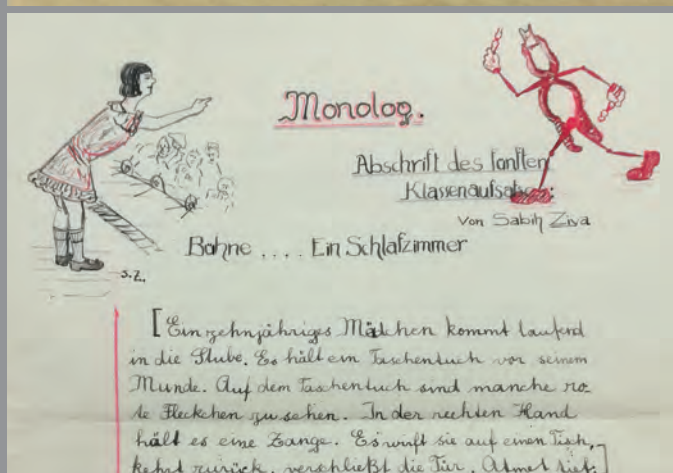 Monolog.
Abschrift des fonften
Klassenaufsabes:
von Sabih Ziya
Bohne .... Ein Schlafzimmer
S.Z.
[Ein zehnjähriges Mädchen kommt laufend
in die Stube. Es hält ein Taschentuch vor seinem
Munde. Auf dem Taschentuch sind manche ro-
te Fleckchen zu sehen. In der rechten Hand
hält es eine Zange. Es wirft sie auf einen Tisch,
kehrt zurück, verschließt die Tür. Atmet tief]